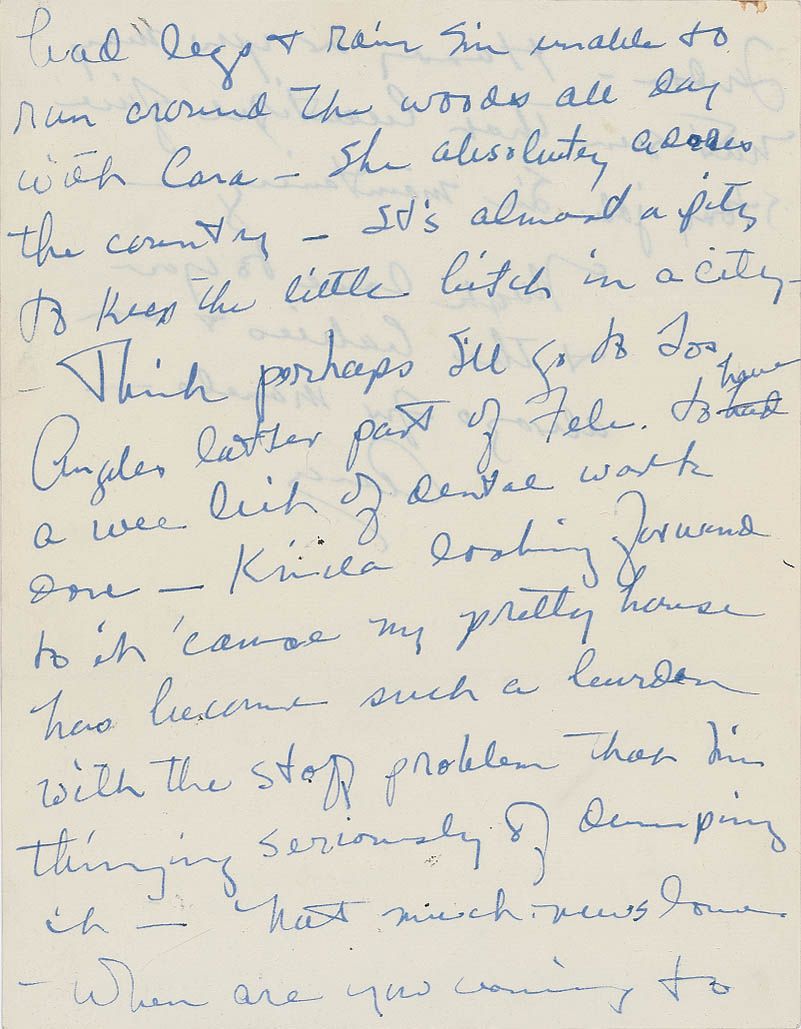 bad legs & rain I'm unable to
run around the woods all day
with Cara – She absolutey adores
the country – It's almost a pity
to keep the little bitch in a city –
– Think perhaps I'll go to Los
Angles latter part of Feb. to have
a wee bit of dental work
done – Kinda looking forward
to it 'cause my pretty house
has become such a burden
with the staff problem that I'm
thinging seriously of dumping
it – Not much news love
– When are you coming to